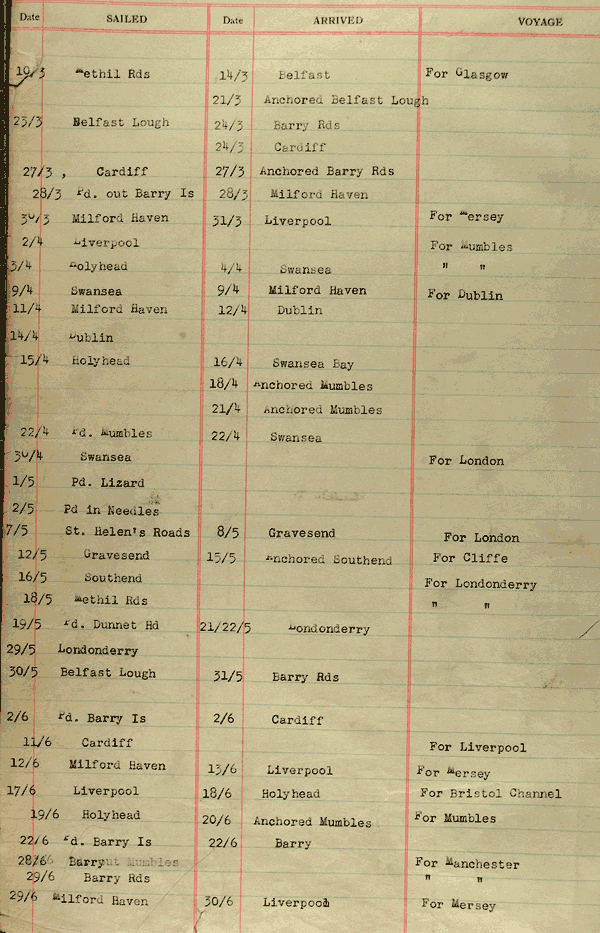 Date SAILED Date ARRIVED VOYAGE
19/3 Methil Rds 14/3 Belfast For Glasgow
21/3 Anchored Belfast Lough
23/3 Belfast Lough 24/3 Barry Rds
24/3 Cardiff
27/3 , Cardiff 27/3 Anchored Barry Rds
28/3 Pd. out Barry Is 28/3 Milford Haven
30/3 Milford Haven 31/3 Liverpool For Mersey
2/4 Liverpool For Mumbles
3/4 Holyhead 4/4 Swansea " "
9/4 Swansea 9/4 Milford Haven For Dublin
11/4 Milford Haven 12/4 Dublin
14/4 Dublin
15/4 Holyhead 16/4 Swansea Bay
18/4 Anchored Mumbles
21/4 Anchored Mumbles
22/4 Pd. Mumbles 22/4 Swansea
30/4 Swansea For London
1/5 Pd. Lizard
2/5 Pd in Needles
7/5 St. Helen's Roads 8/5 Gravesend For London
12/5 Gravesend 15/5 Anchored Southend For Cliffe
16/5 Southend For Londonderry
18/5 Methil Rds " "
19/5 Pd. Dunnet Hd 21/22/5 Londonderry
29/5 Londonderry
30/5 Belfast Lough 31/5 Barry Rds
2/6 Pd. Barry Is 2/6 Cardiff
11/6 Cardiff For Liverpool
12/6 Milford Haven 13/6 Liverpool For Mersey
17/6 Liverpool 18/6 Holyhead For Bristol Channel
19/6 Holyhead 20/6 Anchored Mumbles For Mumbles
22/6 Pd. Barry Is 22/6 Barry
28/6 Barry out Mumbles For Manchester
29/6 Barry Rds " "
29/6 Milford Haven 30/6 Liverpool For Mersey